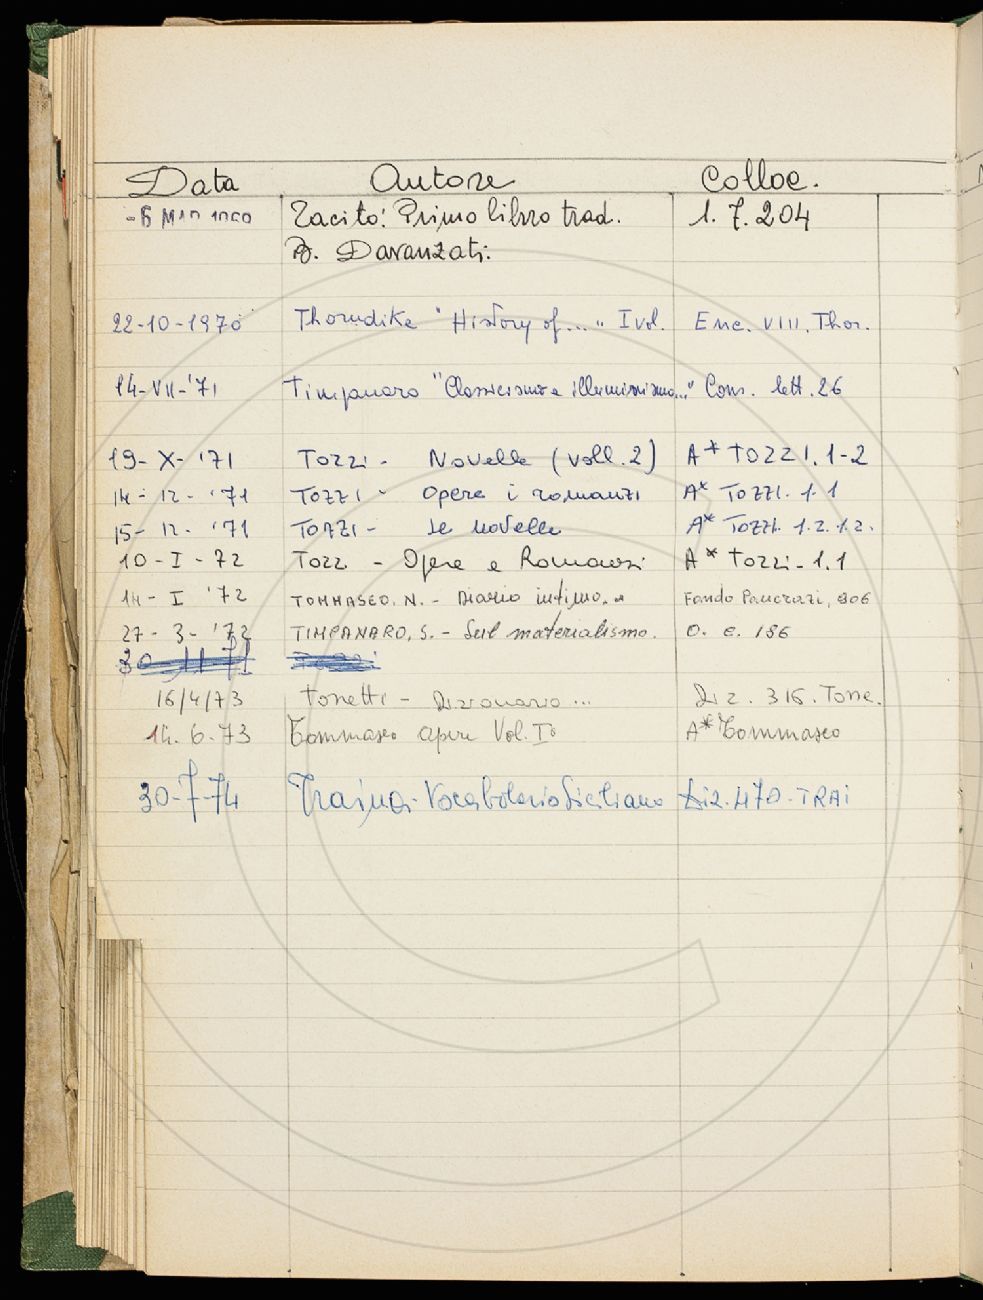 Data Autore Colloc.
Tacito: Primo libro trad. 1. 7. 204
B. Davanzati.
22-10-1970 Thorndike "History of..." I vol. Enc. VIII. Thor.
14-VII-'71 Timpanaro "Classicismo e illuminismo..." Cons. lett. 26
19- X- '71 Tozzi - Novelle (voll. 2) A* TOZZI. 1-2
14- 12- '71 TOZZI - Opere i romanzi A* TOZZI. 1.1
15- 12. '71 TOZZI - Le novelle A* TOZZI. 1.2. 1.2.
10-I-72 Tozz - Opere e Romanzi A* Tozzi-1.1
14- I '72 TOMMASEO. N. - Diario intimo. Fondo Pancrazi, 306
27- 3- '72 TIMPANARO, S. - Sul materialismo. O. e. 186
30 11 71
16/4/73 Tonetti - Dizionario... Diz. 316. Tone.
14. 6. 73 Tommaseo opere Vol. I° A* Tommaseo
30-7-74 Traina. Vocabolario Siciliano Diz. 470-TRAI